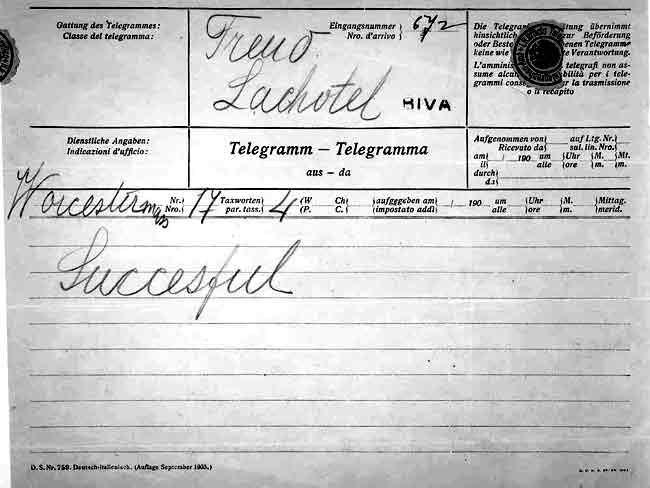 Gattung des Telegrammes:
Classe del telegramma:
Freud
Lachotel
RIVA
Eingangsnummer
Nro. d'arrivo
67/2
Die Telegra ung übernimmt
hinsichtlich zur Beförderung
oder Beste enen Telegramme
keine wie te Verantwortung.
L'amminis telegrafi non as-
sume alcu bilità per i tele-
grammi cons r la trasmissione
o il recapito
Dienstliche Angaben:
Indicazioni d'ufficio:
Telegramm – Telegramma
aus – da
Aufgenommen von auf Ltg. Nr.
Ricevato da sul. lin. Nro.
am / 190 um Uhr M. Mt.
il alle ore m.
durch
da
Worcester mass Nr. 17 Taxworten 4 (W Ch aufgegeben am / 190 um Uhr M. Mittag.
Nro. par. tass. (P. C. impostato addì alle ore m. merid.
Succesful
D. S. Nr. 759. Deutsch-italienisch. (Auflage September 1905.)